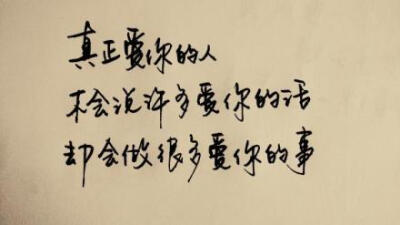 真正爱你的人
不会说许多爱你的话
却会做很多爱你的事